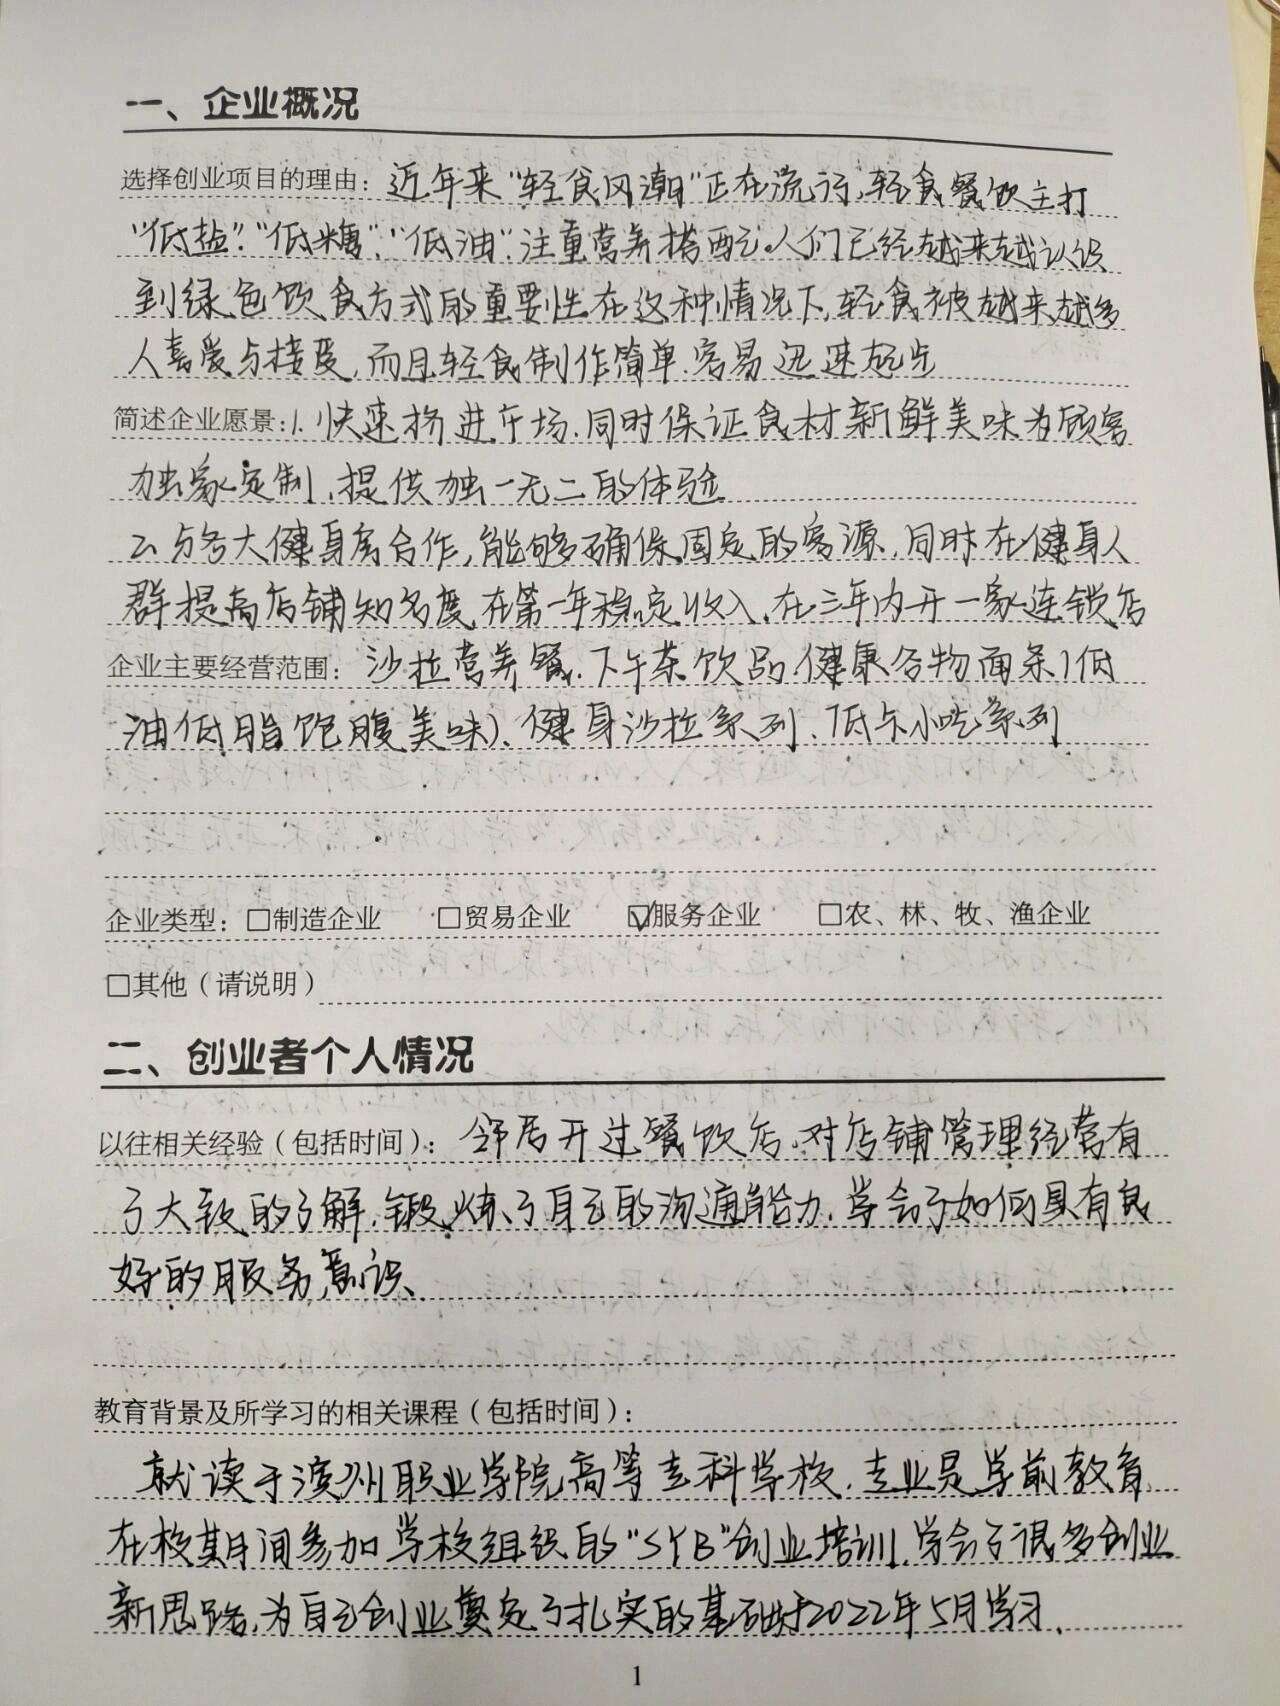 一、企业概况
选择创业项目的理由：近年来“轻食风潮”正在流行，轻食餐饮主打
“低盐”、“低糖”、“低油”、注重营养搭配。人们已经越来越认识
到绿色饮食方式的重要性在这种情况下，轻食被越来越多
人喜爱与接受，而且轻食制作简单、容易迅速起步
简述企业愿景：1. 快速挤进市场，同时保证食材新鲜美味为顾客
独家定制，提供独一无二的体验
2. 与各大健身房合作，能够确保固定的客源，同时在健身人
群提高店铺知名度，在第一年稳定收入，在三年内开一家连锁店
企业主要经营范围：沙拉营养餐、下午茶饮品、健康谷物面条（低
油低脂饱腹美味）、健身沙拉系列、低卡小吃系列
企业类型：□制造企业 □贸易企业 ☑服务企业 □农、林、牧、渔企业
□其他（请说明）
二、创业者个人情况
以往相关经验（包括时间）：邻居开过餐饮店，对店铺管理经营有
了大致的了解，锻炼了自己的沟通能力，学会了如何具有良
好的服务意识、
教育背景及所学习的相关课程（包括时间）：
就读于滨州职业学院高等专科学校，专业是学前教育
在校期间参加学校组织的“SYB”创业培训，学会了很多创业
新思路，为自己创业奠定了扎实的基础于2022年5月学习、
1